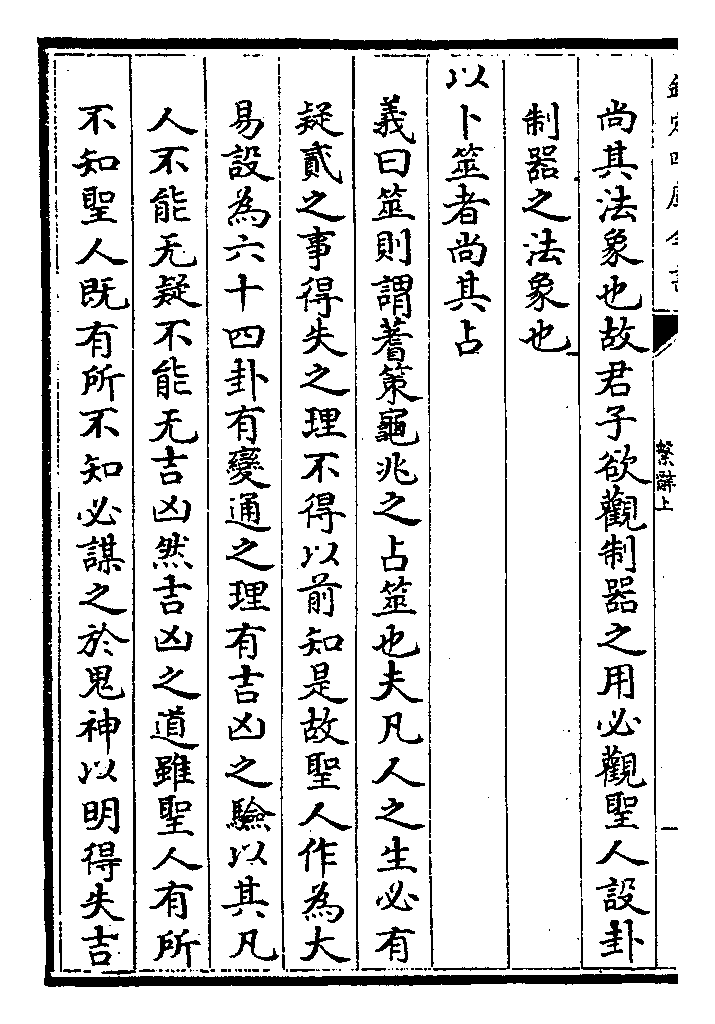 欽定四庫全書
繫辭上
尚其法象也故君子欲觀制器之用必觀聖人設卦
制器之法象也
以卜筮者尚其占
義曰筮則謂蓍策龜兆之占筮也夫凡人之生必有
疑貳之事得失之理不得以前知是故聖人作為大
易設為六十四卦有變通之理有吉凶之驗以其凡
人不能无疑不能无吉凶然吉凶之道雖聖人有所
不知聖人既有所不知必謀之於鬼神以明得失吉